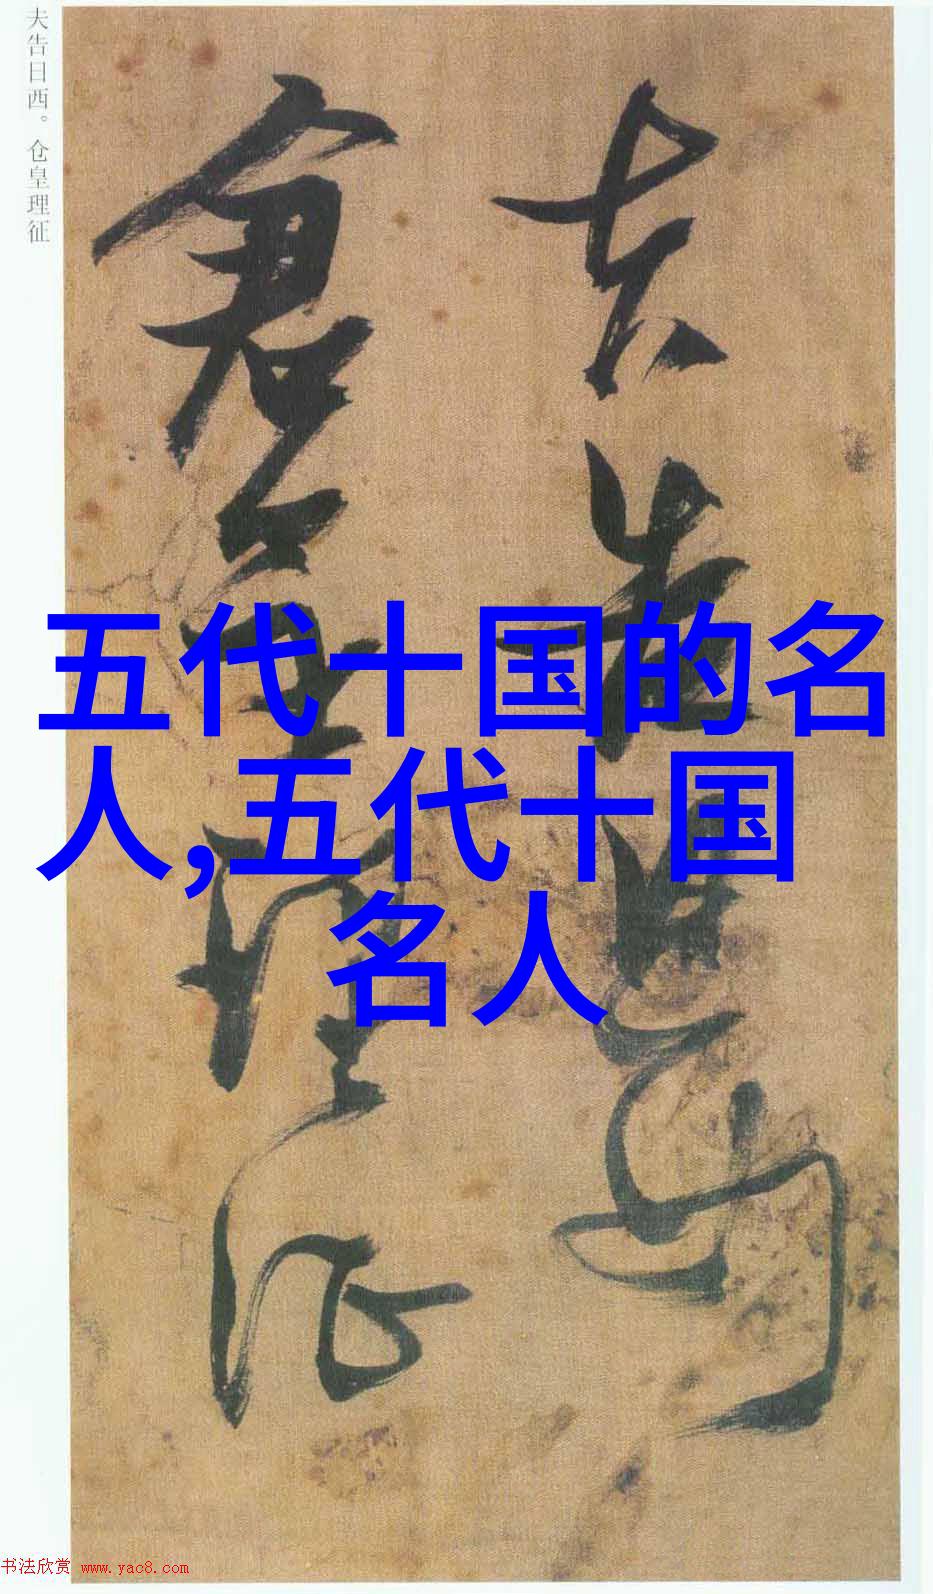 夫告日西。仓皇理征
夫告日西
仓皇理征
五代十国的名
人,五代十国
名人
书法欣赏 www.yac8.com